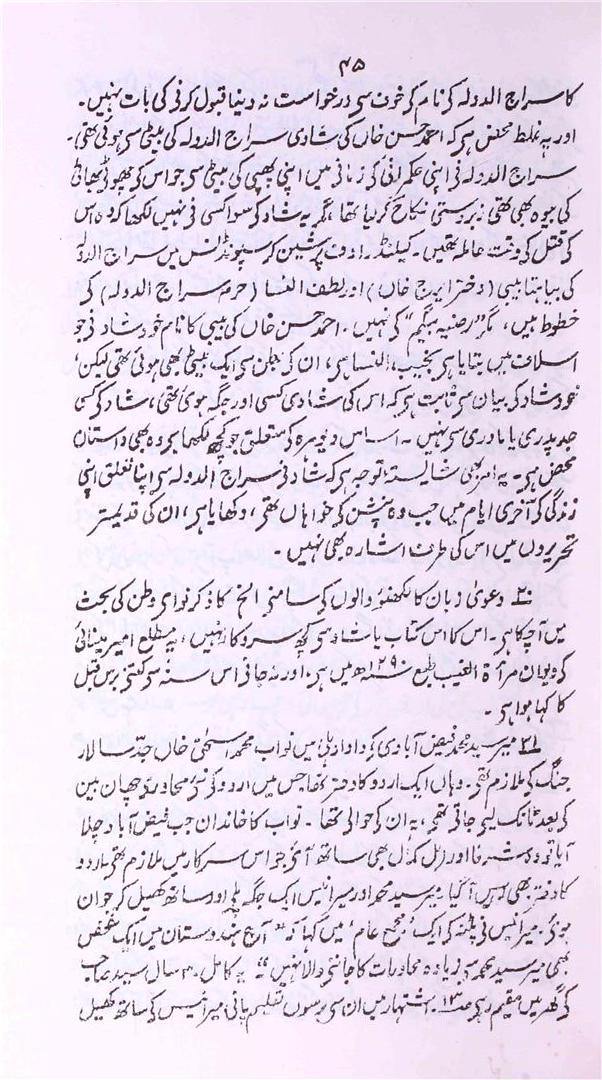 ۴۵
کا سراج الدولہ کی نام کی خون سی درخواست نہ دنیا قبول کرنی کی بات نہیں۔
اور یہ غلط محض ہی کہ احمد حسن خاں کی شادی سراج الدولہ کی بیٹی سی ہوئی تھی۔
سراج الدولہ نی اپنی حکمرانی کی زمانی میں اپنی پھپی کی بیٹی سی جو اس کی پھوپی بھائی
کی بیوہ بھی تھی زبردستی نکاح کر لیا تھا، مگر یہ شاد کی سوا کسی نی نہیں لکھا کہ وہ اس
کی قتل کی وقت حاملہ تھیں۔ کیلنڈر اوف پرشین کرسپونڈنس میں سراج الدولہ
کی بیاہتا بیبی (دختر ایرج خاں) اور لطف النسا (حرم سراج الدولہ) کی
خطوط ہیں، مگر "رضیہ بیگم" کی نہیں۔ احمد حسن خاں کی بیبی کا نام خود شاد نی جو
اسلاف میں بتایا ہی نجیب النسا ہی، ان کی بطن سی ایک بیٹی بھی ہوئی تھی لیکن
خود شاد کی بیان سی ثابت ہی کہ اس کی شادی کسی اور جگہ ہوئی تھی، شاد کی کسی
جد پدری یا مادری سی نہیں۔ اساس وغیرہ کی متعلق جو کچھ لکھا ہی وہ بھی داستان
محض ہی۔ یہ امر بھی شایستۂ توجہ ہی کہ شاد نی سراج الدولہ سی اپنا تعلق اپنی
زندگی کی آخری ایام میں جب وہ پنشن کی خواہاں تھی، دکھایا ہی، ان کی قدیمتر
تحریروں میں اس کی طرف اشارہ بھی نہیں۔
۲۰ دعویٰ زبان کا لکھنؤ والوں کی سامنی الخ کا ذکر نوای وطن کی بحث
میں آچکا ہی۔ اس کا اس کتاب یا شاد سی کچھ سروکار نہیں، یہ مطلع امیر مینائی
کی دیوان مرآۃ الغیب طبع ۱۲۹۰ھ میں ہی۔ اور نہ جانی اس سنہ سی کتنی برس قبل
کا کہا ہوا ہی۔
۲۱ میر سید محمد فیض آبادی کی دادا دہلی میں نواب محمد اسحٰق خاں جد سالار
جنگ کی ملازم تھی۔ وہاں ایک اردو کا دفتر تھا جس میں اردو کی نئی محاوری چھان بین
کی بعد ٹانک لیی جاتی تھی، یہ ان کی حوالی تھا۔ نواب کا خاندان جب فیض آباد چلا
آیا تو وہ شرفا اور اہل کمال بھی ساتھ آئی جو اس سرکار میں ملازم تھی۔ اردو
کا دفتر بھی یہیں آ گیا۔ میر سید محمد اور میر انیس ایک جگہ پلی اور ساتھ کھیل کر جوان
ہوئی۔ میر انیس نی پٹنہ کی ایک 'مجمع عام' میں کہا کہ "آج ہندوستان میں ایک شخص
بھی میر سید محمد سی زیادہ محاورات کا جاننی والا نہیں" یہ کامل ۳۰ سال سید صاحب
کی گھر میں مقیم رہی ص ۱۳۔ اشتہار میں ان سی برسوں تعلیم پانی، میر انیس کی ساتھ کھیل